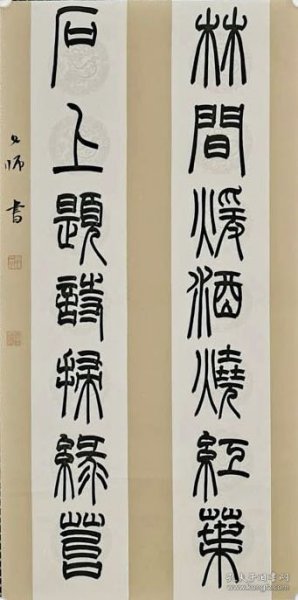 林間煖酒燒紅葉
石上題詩掃綠苔
師書
孔夫子旧书网